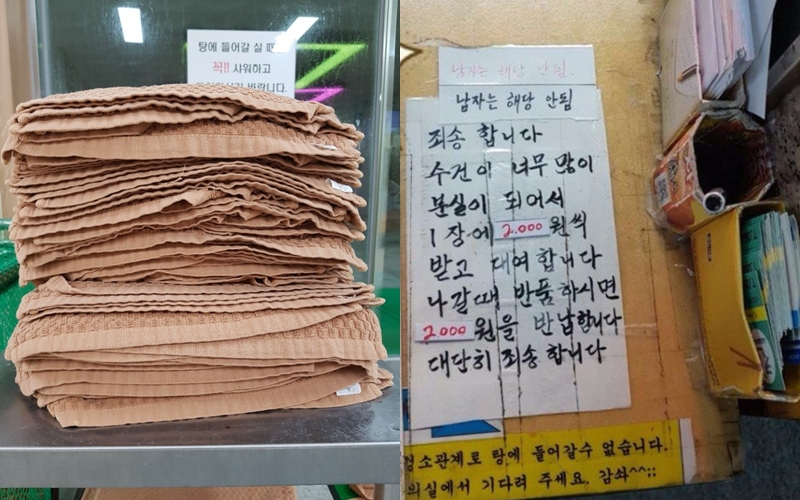 탕에 들어갈 실 때
꼭!! 샤워하고
바랍니다.
남자는 해당 안됨.
남자는 해당 안됨
죄송 합니다
수건이 너무 많이
분실이 되어서
1장에 2.000원씩
받고 대여합니다
나갈때 반품하시면
2.000원을 반납합니다
대단히 죄송합니다
청소관계로 탕에 들어갈수 없습니다.
의실에서 기다려 주세요. 감솨^^;;